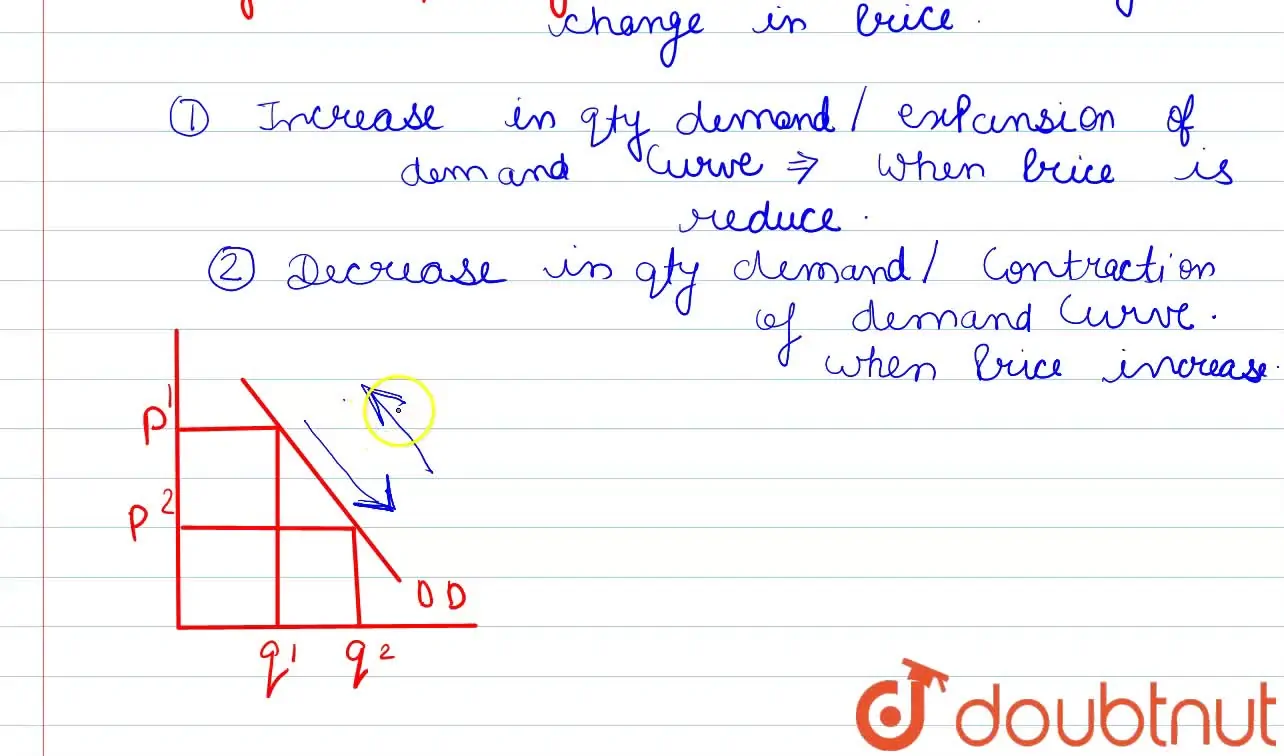 change in price.
① Increase in qty demand / expansion of
demand curve ⇒ when price is
reduce.
② Decrease in qty demand / contraction
of demand curve.
when price increase.
P1
P2
DD
q1 q2
doubtnut